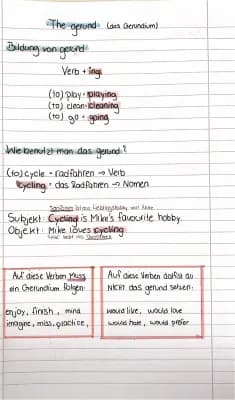 The gerund (das Gerundium)
Bildung von gerund
Verb + ing
(to) play - playing
(to) clean - cleaning
(to) go - going
Wie benutzt man das gerund?
(to) cycle = radfahren → Verb
Cycling = das Radfahren → Nomen
Subjekt: Cycling is Mike's favourite hobby.
Objekt: Mike loves cycling
Auf diese Verben muss
ein Gerundium folgen:
enjoy, finish, mind
imagine, miss, practice,
Auf diese Verben darfst du
NICHT das gerund setzen:
would like, would love
would hate, would prefer